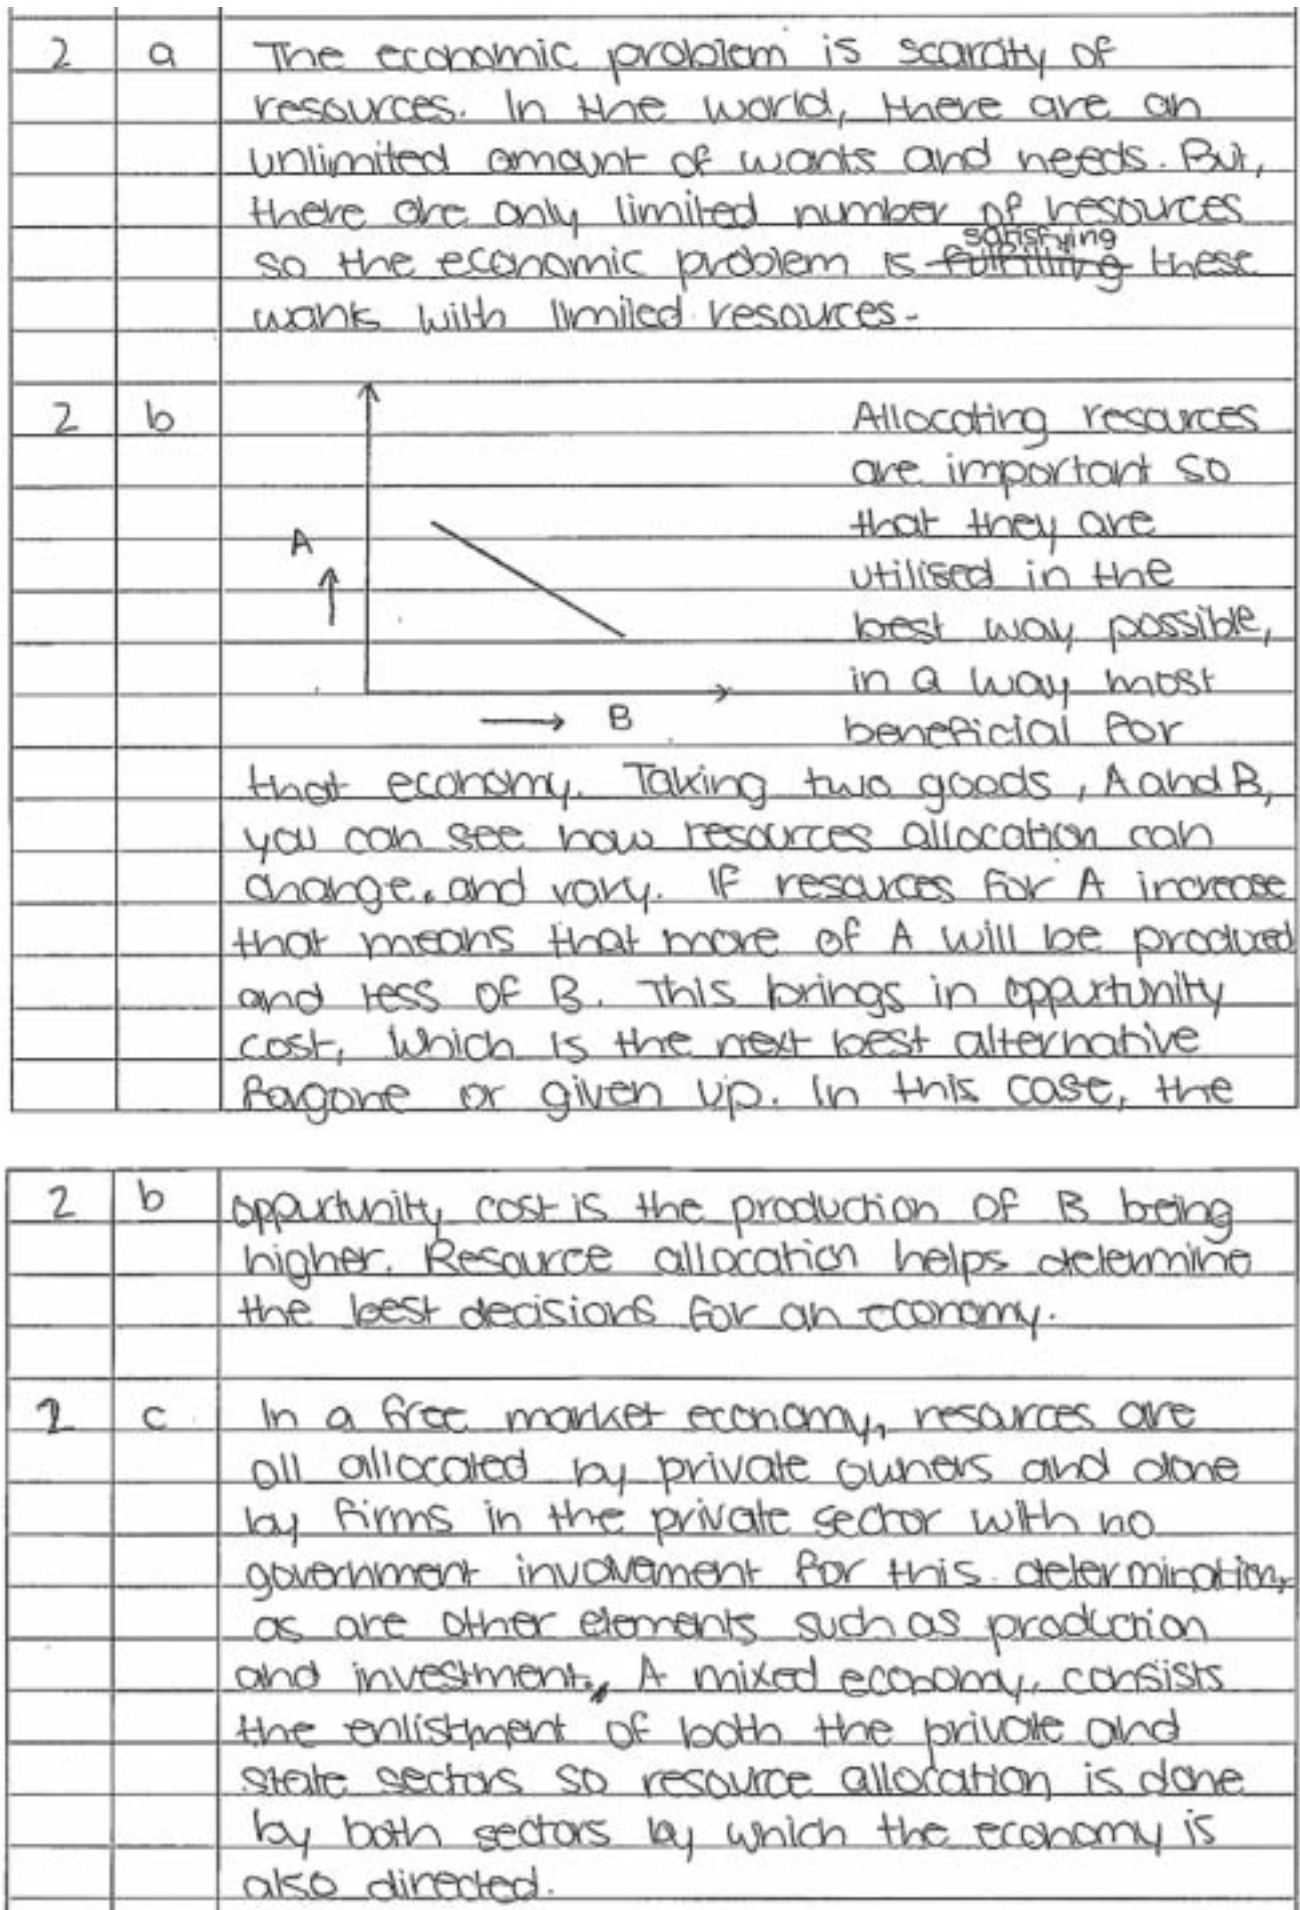 2 a The economic problem is scarcity of
resources. In the world, there are an
unlimited amount of wants and needs. But,
there are only limited number of resources
satisfying
so the economic problem is fulfilling these
wants with limited resources.
2 b Allocating resources
are important so
A that they are
utilised in the
best way possible,
in a way most
B beneficial for
that economy. Taking two goods, A and B,
you can see how resources allocation can
change. and vary. If resources for A increase
that means that more of A will be produced
and less of B. This brings in oppurtunity
cost, which is the next best alternative
forgone or given up. In this case, the
2 b oppurtunity cost is the production of B being
higher. Resource allocation helps determine
the best decisions for an economy.
2 c In a free market economy, resources are
all allocated by private owners and done
by firms in the private sector with no
government involvement for this determination,
as are other elements such as production
and investment. A mixed economy, consists
the enlistment of both the private and
state sectors so resource allocation is done
by both sectors by which the economy is
also directed.